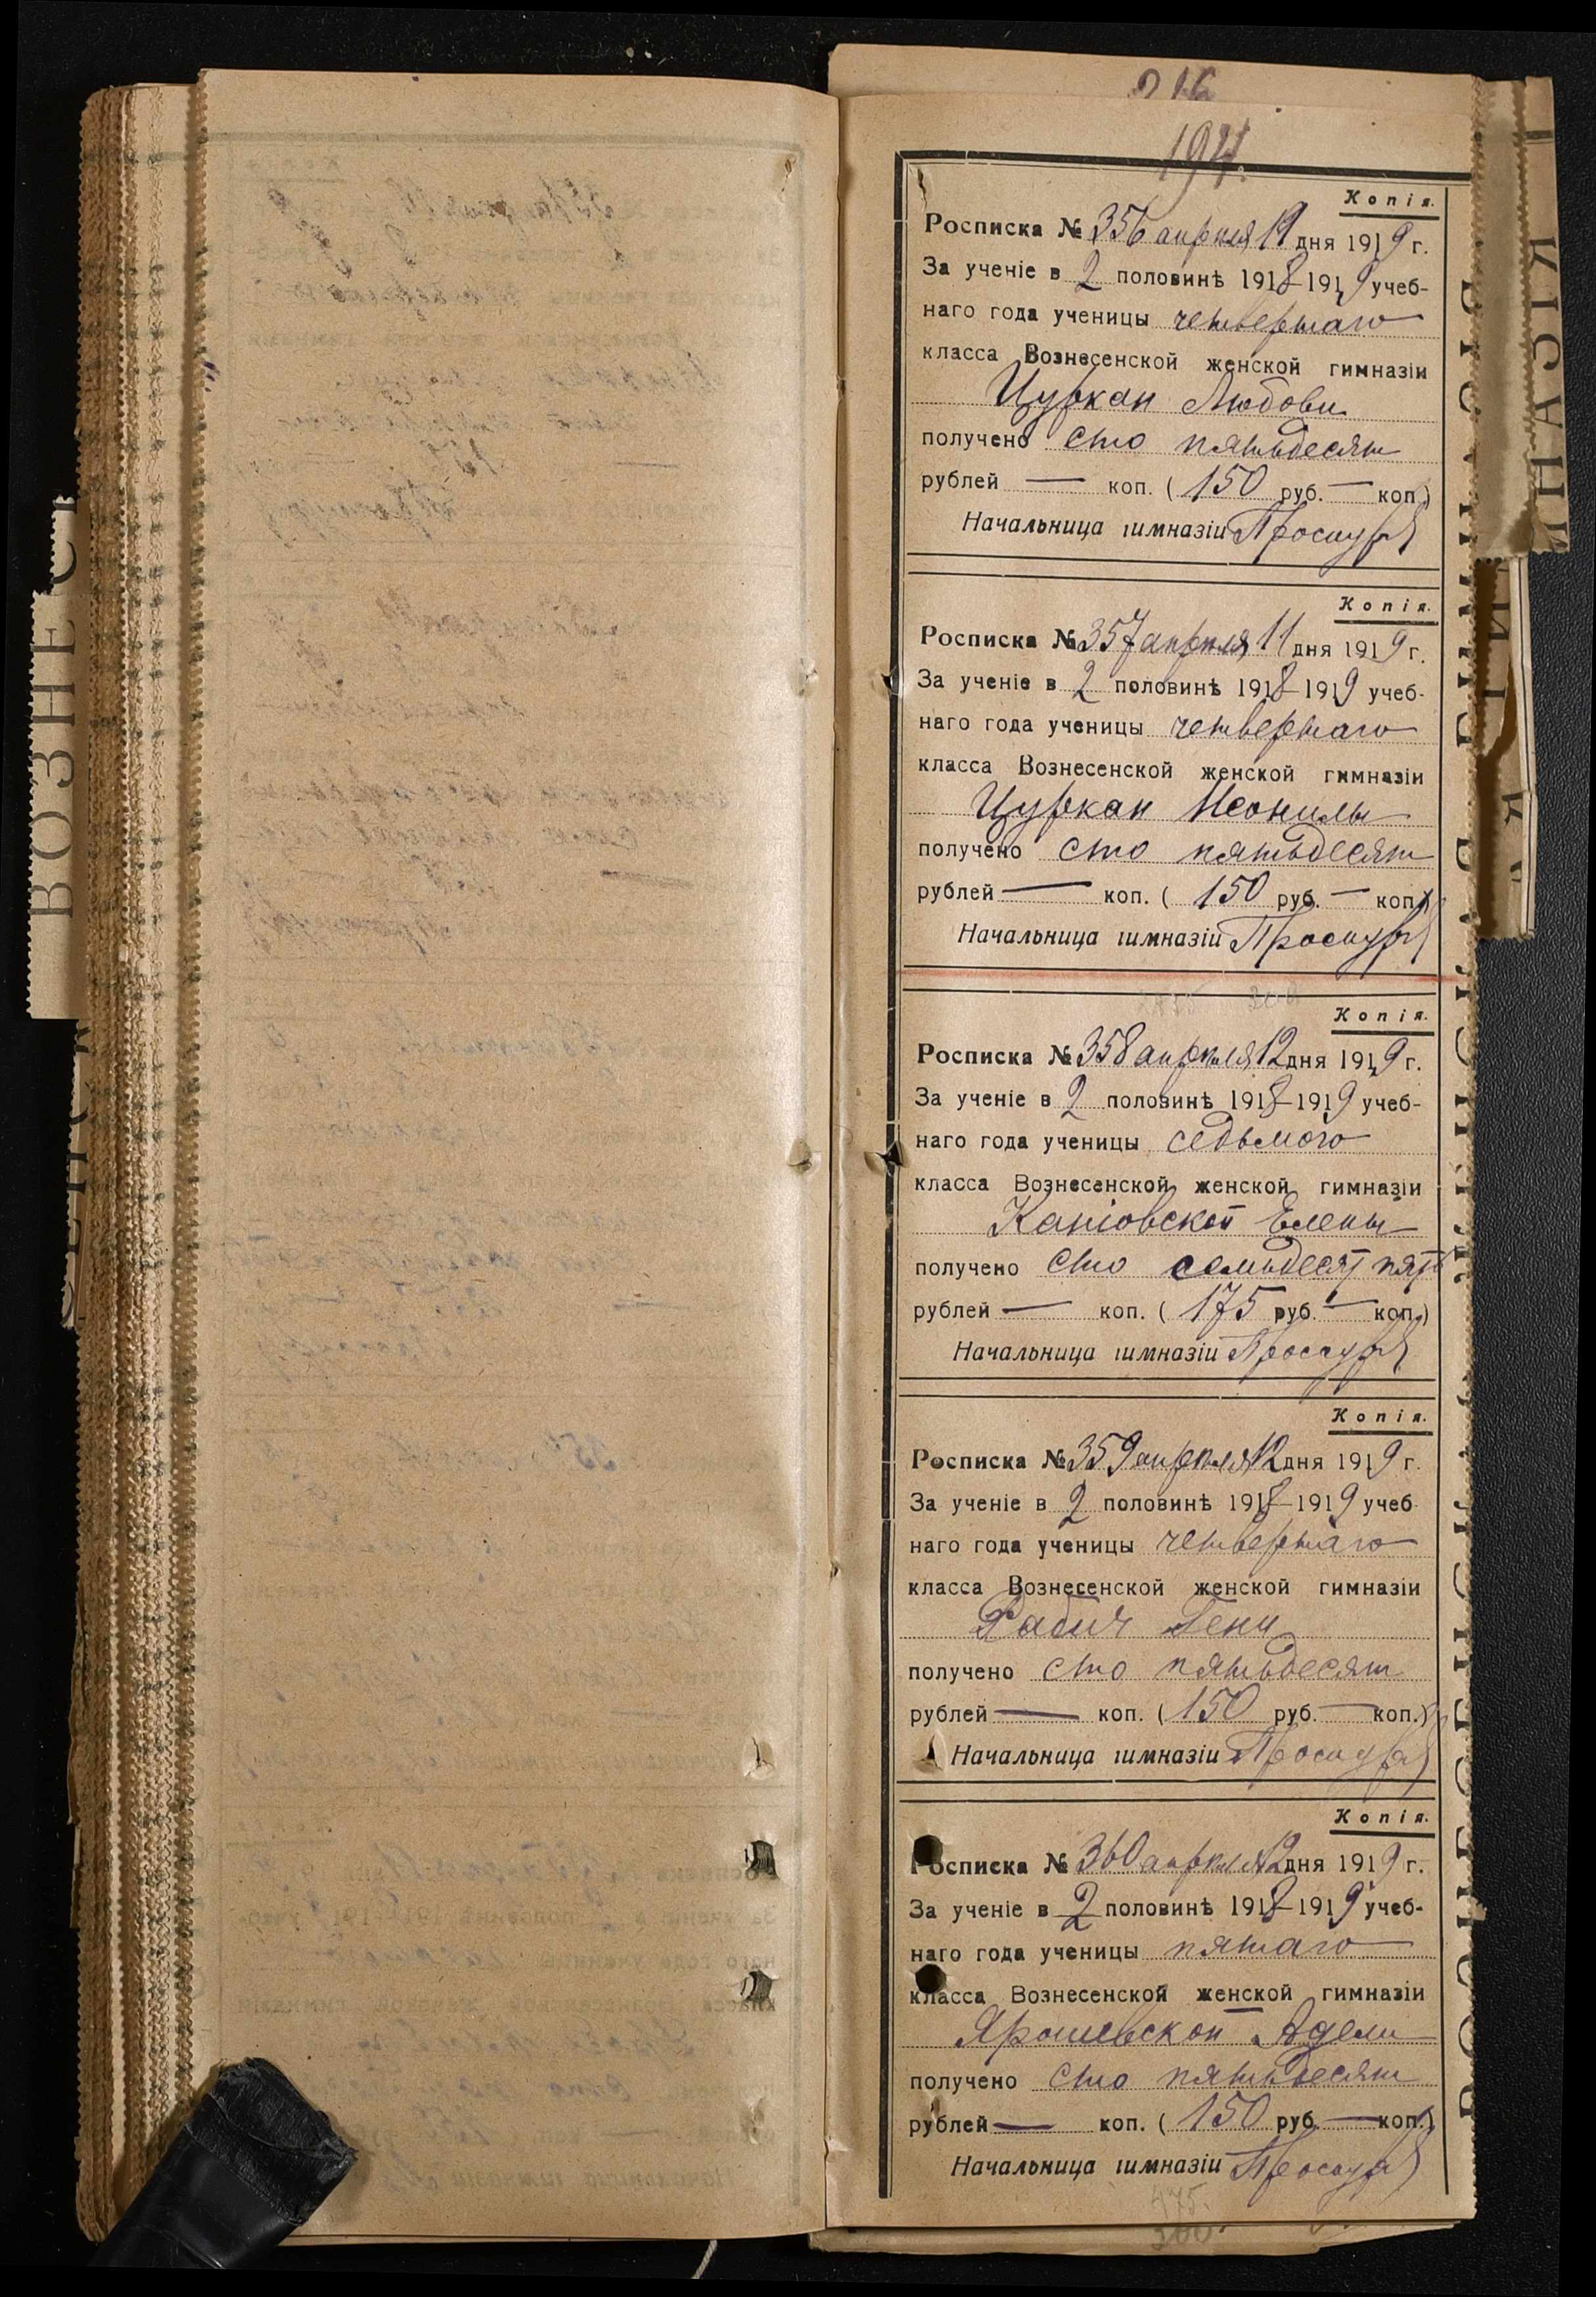 194.
Копія.
Росписка № 356 апрѣля 11 дня 1919 г.
За ученіе в 2 половинѣ 1918-1919 учеб-
наго года ученицы четвертаго
класса Вознесенской женской гимназіи
Цуркан Любови
получено сто пятьдесят
рублей — коп. (150 руб. — коп.)
Начальница гимназіи
Копія.
Росписка № 357 апрѣля 11 дня 1919 г.
За ученіе в 2 половинѣ 1918-1919 учеб-
наго года ученицы четвертаго
класса Вознесенской женской гимназіи
Цуркан Неонилы
получено сто пятьдесят
рублей — коп. (150 руб. — коп.)
Начальница гимназіи
Копія.
Росписка № 358 апрѣля 12 дня 1919 г.
За ученіе в 2 половинѣ 1918-1919 учеб-
наго года ученицы седьмого
класса Вознесенской женской гимназіи
Каніовской Елены
получено сто семьдесят пять
рублей — коп. (175 руб. — коп.)
Начальница гимназіи
Копія.
Росписка № 359 апрѣля 12 дня 1919 г.
За ученіе в 2 половинѣ 1918-1919 учеб-
наго года ученицы четвертаго
класса Вознесенской женской гимназіи
Рабич Гени
получено сто пятьдесят
рублей — коп. (150 руб. — коп.)
Начальница гимназіи
Копія.
Росписка № 360 апрѣля 12 дня 1919 г.
За ученіе в 2 половинѣ 1918-1919 учеб-
наго года ученицы пятаго
класса Вознесенской женской гимназіи
Ярошевской Адели
получено сто пятьдесят
рублей — коп. (150 руб. — коп.)
Начальница гимназіи
475.
300.